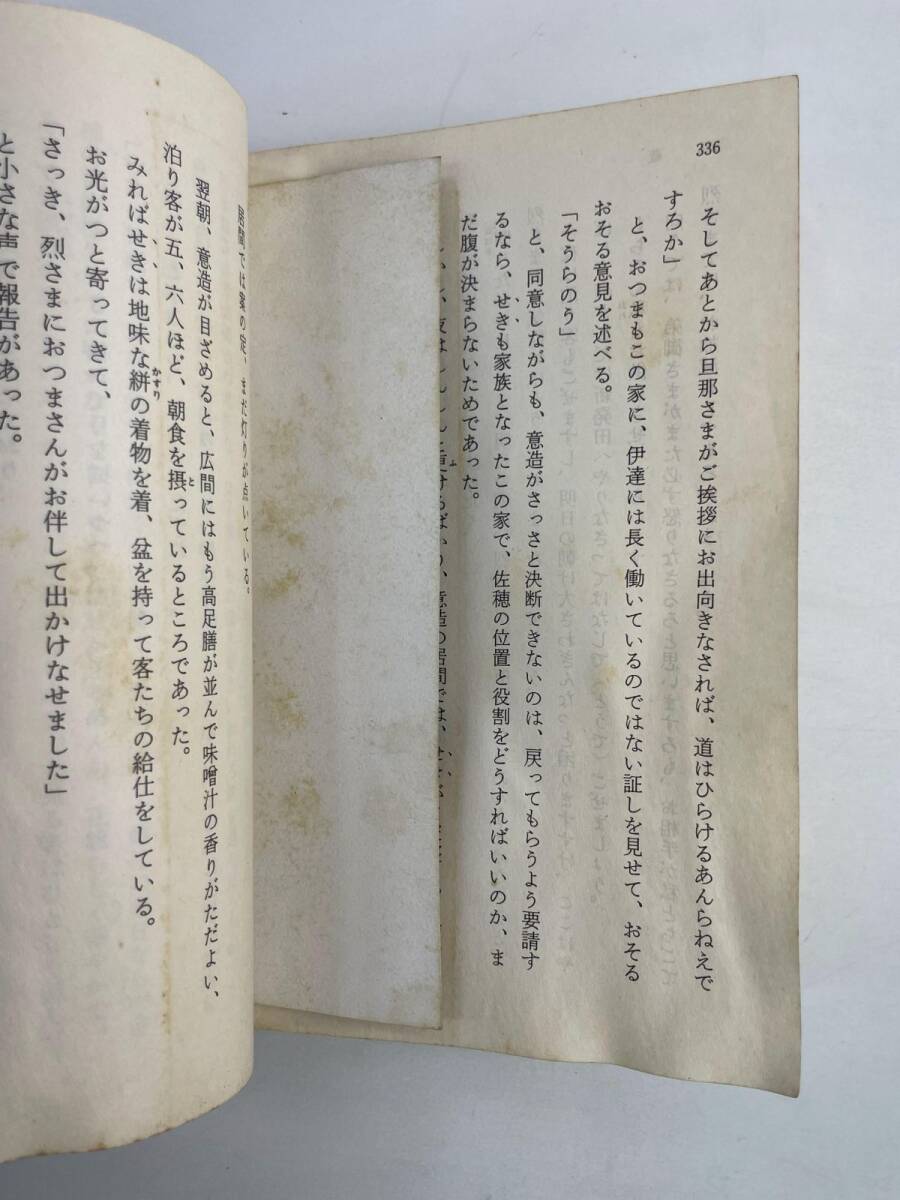 336
そしてあとから旦那さまがご挨拶にお出向きなされば、道はひらけるあんらねえで
すろか」
と、おつまもこの家に、伊達には長く働いているのではない証しを見せて、おそる
おそる意見を述べる。
「そうらのう」
と、同意しながらも、意造がさっさと決断できないのは、戻ってもらうよう要請す
るなら、せきも家族となったこの家で、佐穂の位置と役割をどうすればいいのか、ま
だ腹が決まらないためであった。
意造の居間では、
居間では案の定、まだ灯りが点いている。
翌朝、意造が目ざめると、広間にはもう高足膳が並んで味噌汁の香りがただよい、
泊り客が五、六人ほど、朝食を摂っているところであった。
みればせきは地味な絣の着物を着、盆を持って客たちの給仕をしている。
お光がつと寄ってきて、
「さっき、烈さまにおつまさんがお伴して出かけなせました」
と小さな声で報告があった。